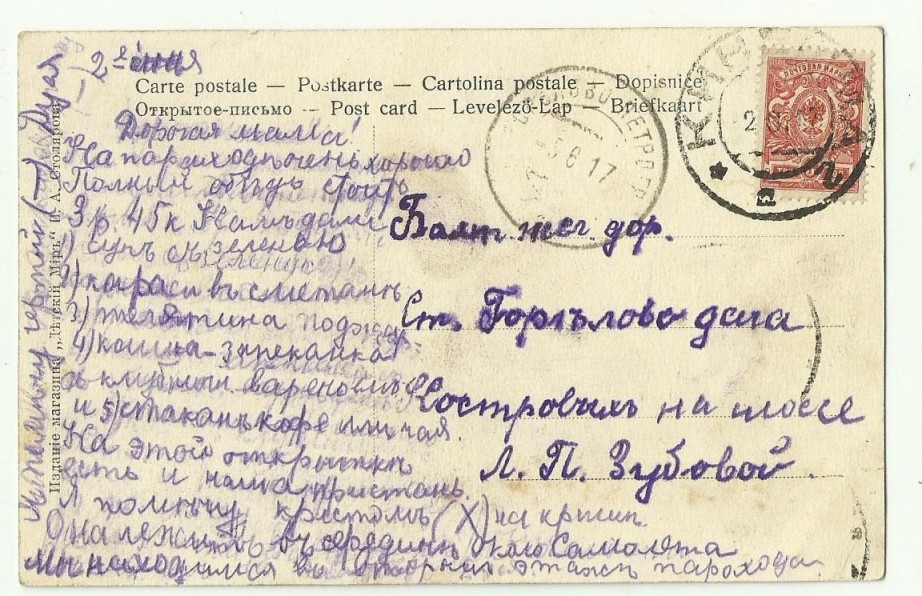 2го іюня
Carte postale — Postkarte — Cartolina postale — Dopisnice
Открытое-письмо -- Post card — Levelező-Lap — Briefkaart
Дорогая мама!
На пароходѣ очень хорошо
Полный обѣдъ стоитъ
3 р. 45 к Намъ дали
1) супъ съ зеленью
2) караси въ сметанѣ
3) телятина поджар.
4) каша-запеканка
съ клубничн. вареньемъ
и 5) стаканъ кофе или чая.
На этой открыткѣ
есть и наша пристань.
Я помѣчу крестомъ (X) на крышѣ.
Она лежитъ въ серединѣ около Самолета
Мы находимся въ этажѣ парохода
Балт. жел. дор.
Ст. Горѣлово дача
Костровыхъ на шоссе
Л. П. Зубовой.
Изданіе магазина „Дѣтскій Міръ" н. А. Столярова
5 6 17